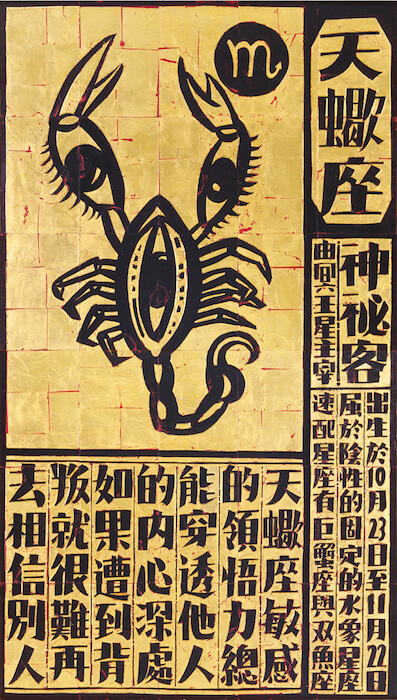 天蠍座
神秘客
由冥王星主宰
出生於10月23日至11月22日
属於陰性的固定的水象星座
速配星座有巨蟹座與双魚座
天蠍座敏感
的領悟力總
能穿透他人
的內心深處
如果遭到背
叛就很難再
去相信別人